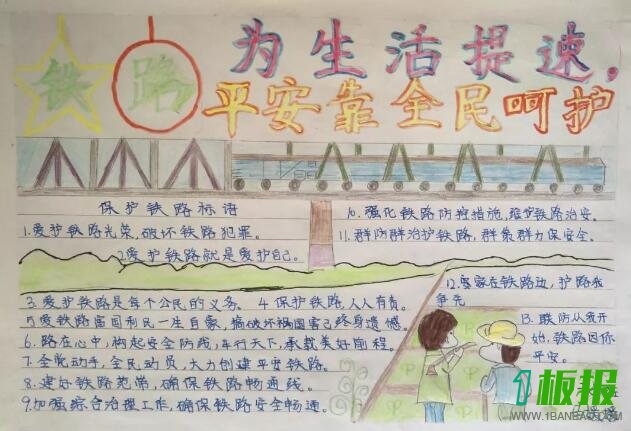 铁路
为生活提速，
平安靠全民呵护
保护铁路标语
1.爱护铁路光荣，破坏铁路犯罪。
2爱护铁路就是爱护自己。
10.强化铁路防控措施，维护铁路治安。
11.群防群治护铁路，群策群力保安全。
3.爱护铁路是每个公民的义务。4保护铁路人人有责。
5爱铁路富国利民一生自豪，搞破坏祸国害己终身遗憾。
6.路在心中，构起安全防线，车行天下，承载美好前程。
7.全民动手，全民动员，大力创建平安铁路。
8.建好铁路，确保铁路畅通线。
9.加强综合治理工作，确保铁路安全畅通。
12.家在铁路边，护路我
争先
13.联防从我开
始，铁路因你
平安。
1板报
WWW.1BANBAO.COM